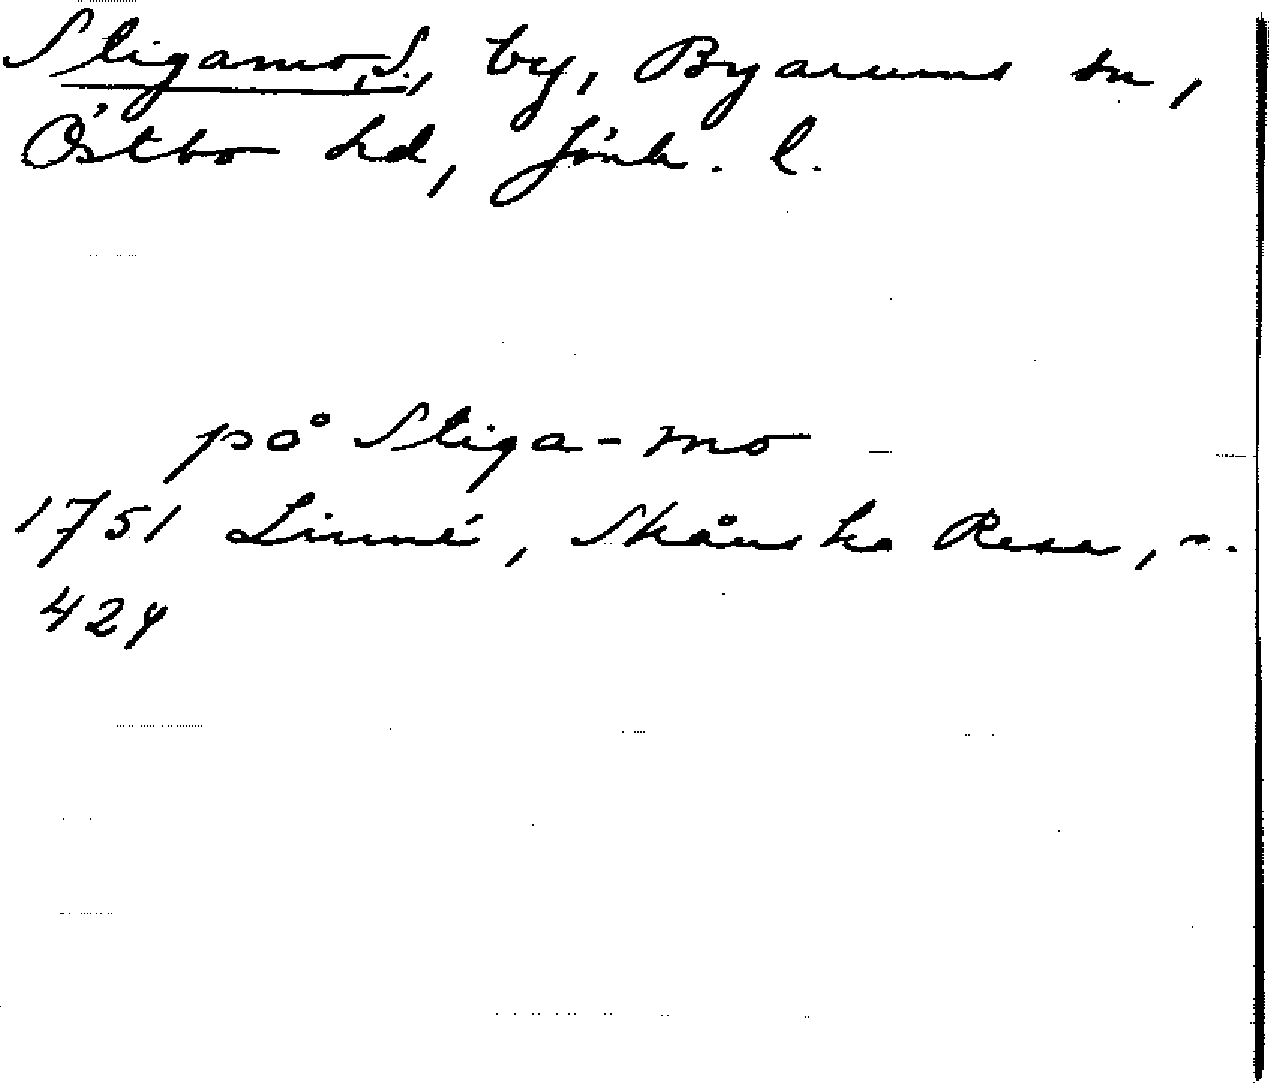 Stigamo, S., by, Byarums sn,
Östbo hd, Jönk. l.
på Stiga-mo —
1751 Linné, Skånska Resa, s.
424